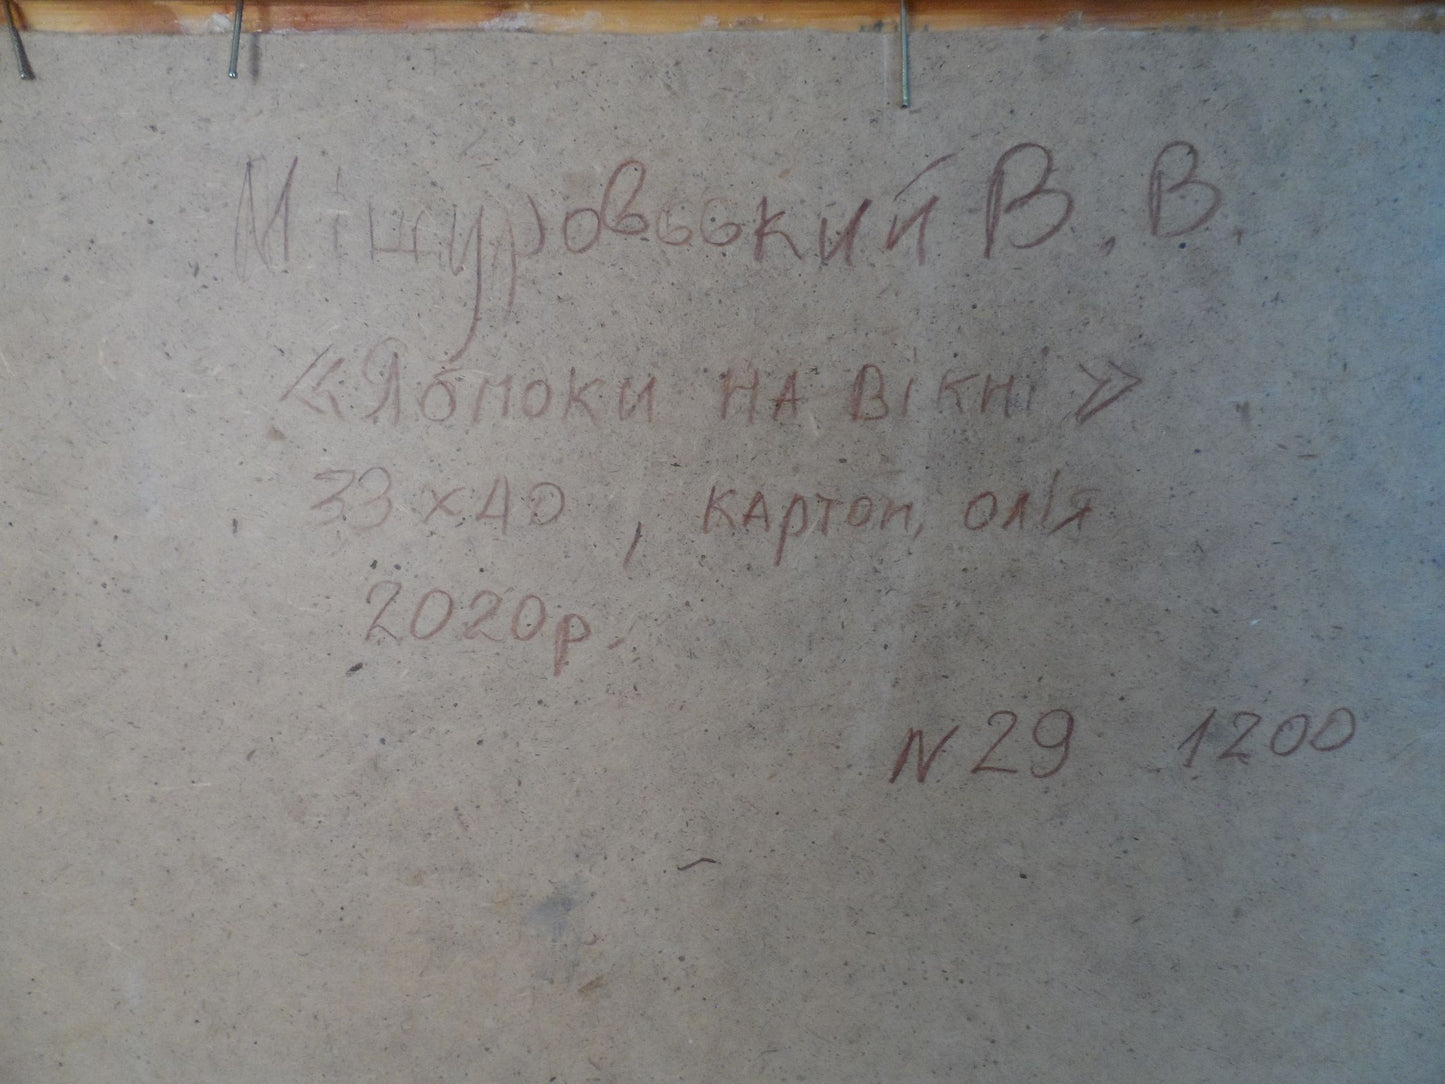 Мішуровський В. В.
«Яблоки на вікні»
33х40, картон, олія
2020р.
N 29 1200